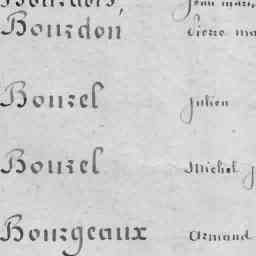 Bourdon Pierre ma
Bourel Julien
Bourel Michel J
Bourgeaux Armand